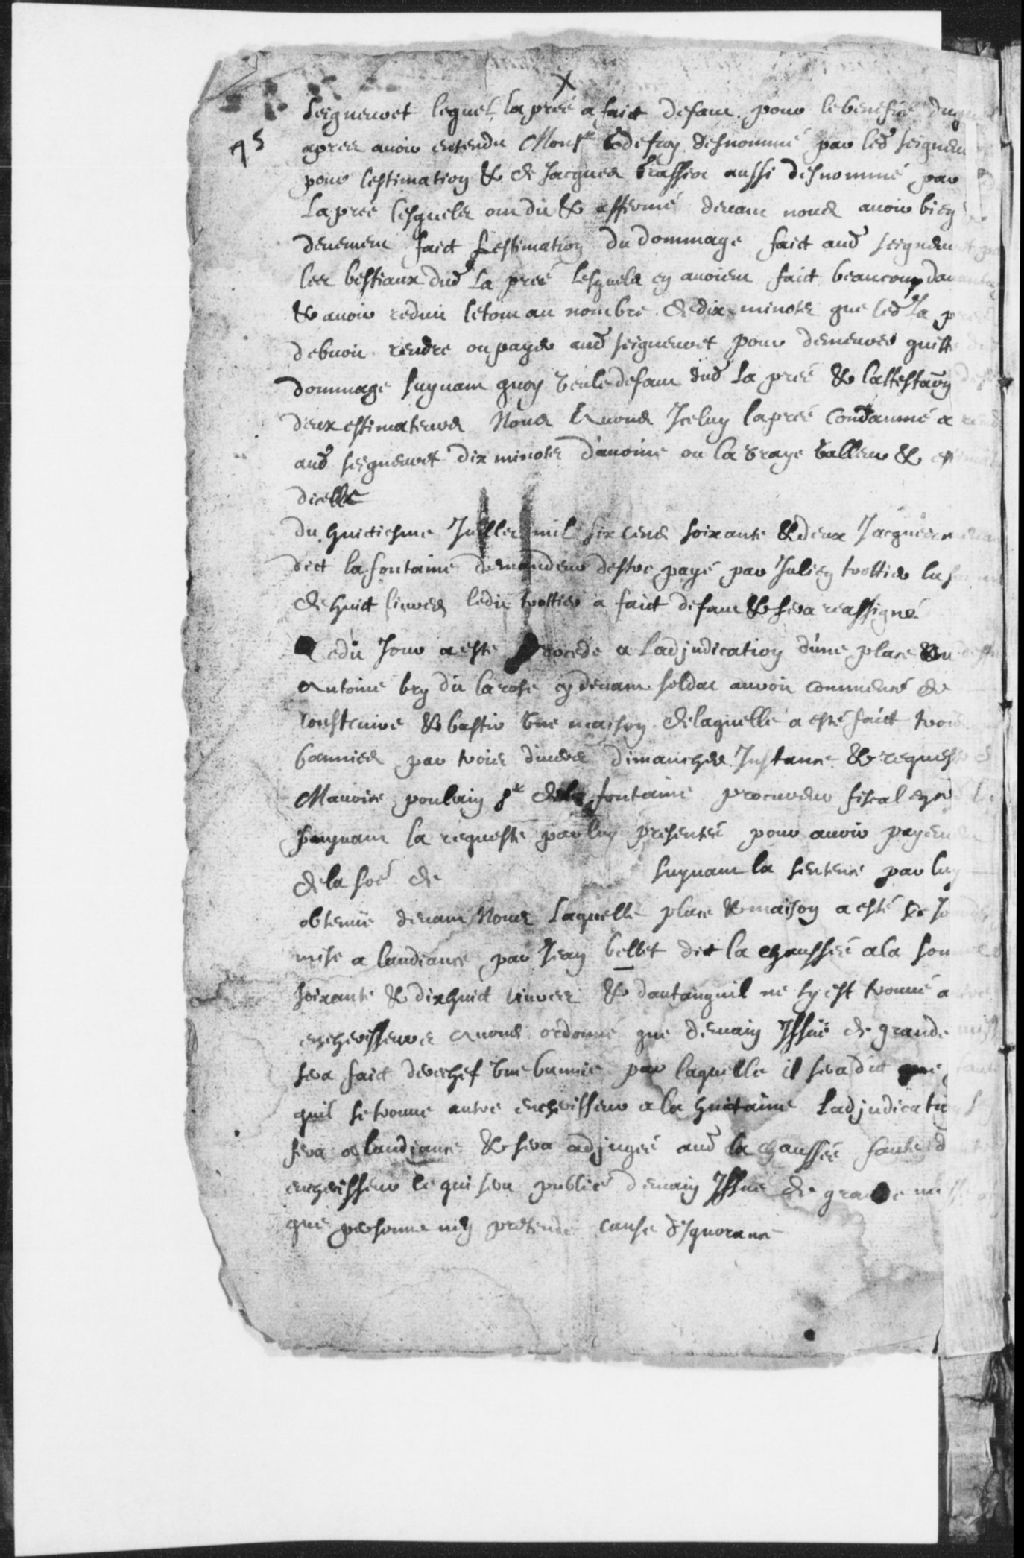 X
Seigneuret lequel la preé a faict defaut pour le benefice duq
75
apres avoir entendu Mons.r Godefroy desnommé par led. Seigneu
pour lestimation & de Jacques brassier aussi desnommé par
La preé lesquels ont dit & affermé devant nous avoir bien
deuement faict Lestimation du dommage faict aud. seigneuret
les bestiaux dud. La preé lesquels en avoient faict beaucoup da
& avoir reduit letout au nombre de dix minots que led. La p
debvoit rendre ou payer aud. seigneuret pour demeurer quitte
dommage suyvant quoy veu le defaut dud. La preé & lattestaōn
deux estimateurs Nous Avons Iceluy lapreé Condamné a
aud. seigneuret dix minots d'avoine ou la vraye valleur &
dicelle
du huictiesme Juillet mil six cens soixante & deux Jacques
dict lafontaine demandeur destre payé par Julien trottier la
de huict livres ledit trottier a faict defaut & sera reassigné
Ledit Jour a esté procedé a Ladjudication d'une place
Antoine bry dit larose cy devant soldat avoit commencé de
construire & bastir une maison de laquelle a esté faict trois
bannies par trois divers dimanches Instance & requeste
Maurice poulain S.r de la fontaine procureur fiscal
suyvant la requeste par luy presenteé pour avoir payem
de la soē de suyvant la sentence par luy
obtenuë devant Nous Laquelle place & maison a esté ce Jo
mise a laudiance par Jean bellet dit la chausseé a la som
soixante & dixhuict livres & dautant quil ne sy est trouvé
encherisseurs avons ordonné que demain Issuë de grande
sera faict derechef une bannie par laquelle il sera dict que
quil se trouve autre encherisseur a la huictaine Ladjudication
sera a laudiance & sera adjugeé aud. la chausseé faute d
encherisseur ce qui sera publié demain Issue de grande
que personne n'en pretende cause d'Ignorance